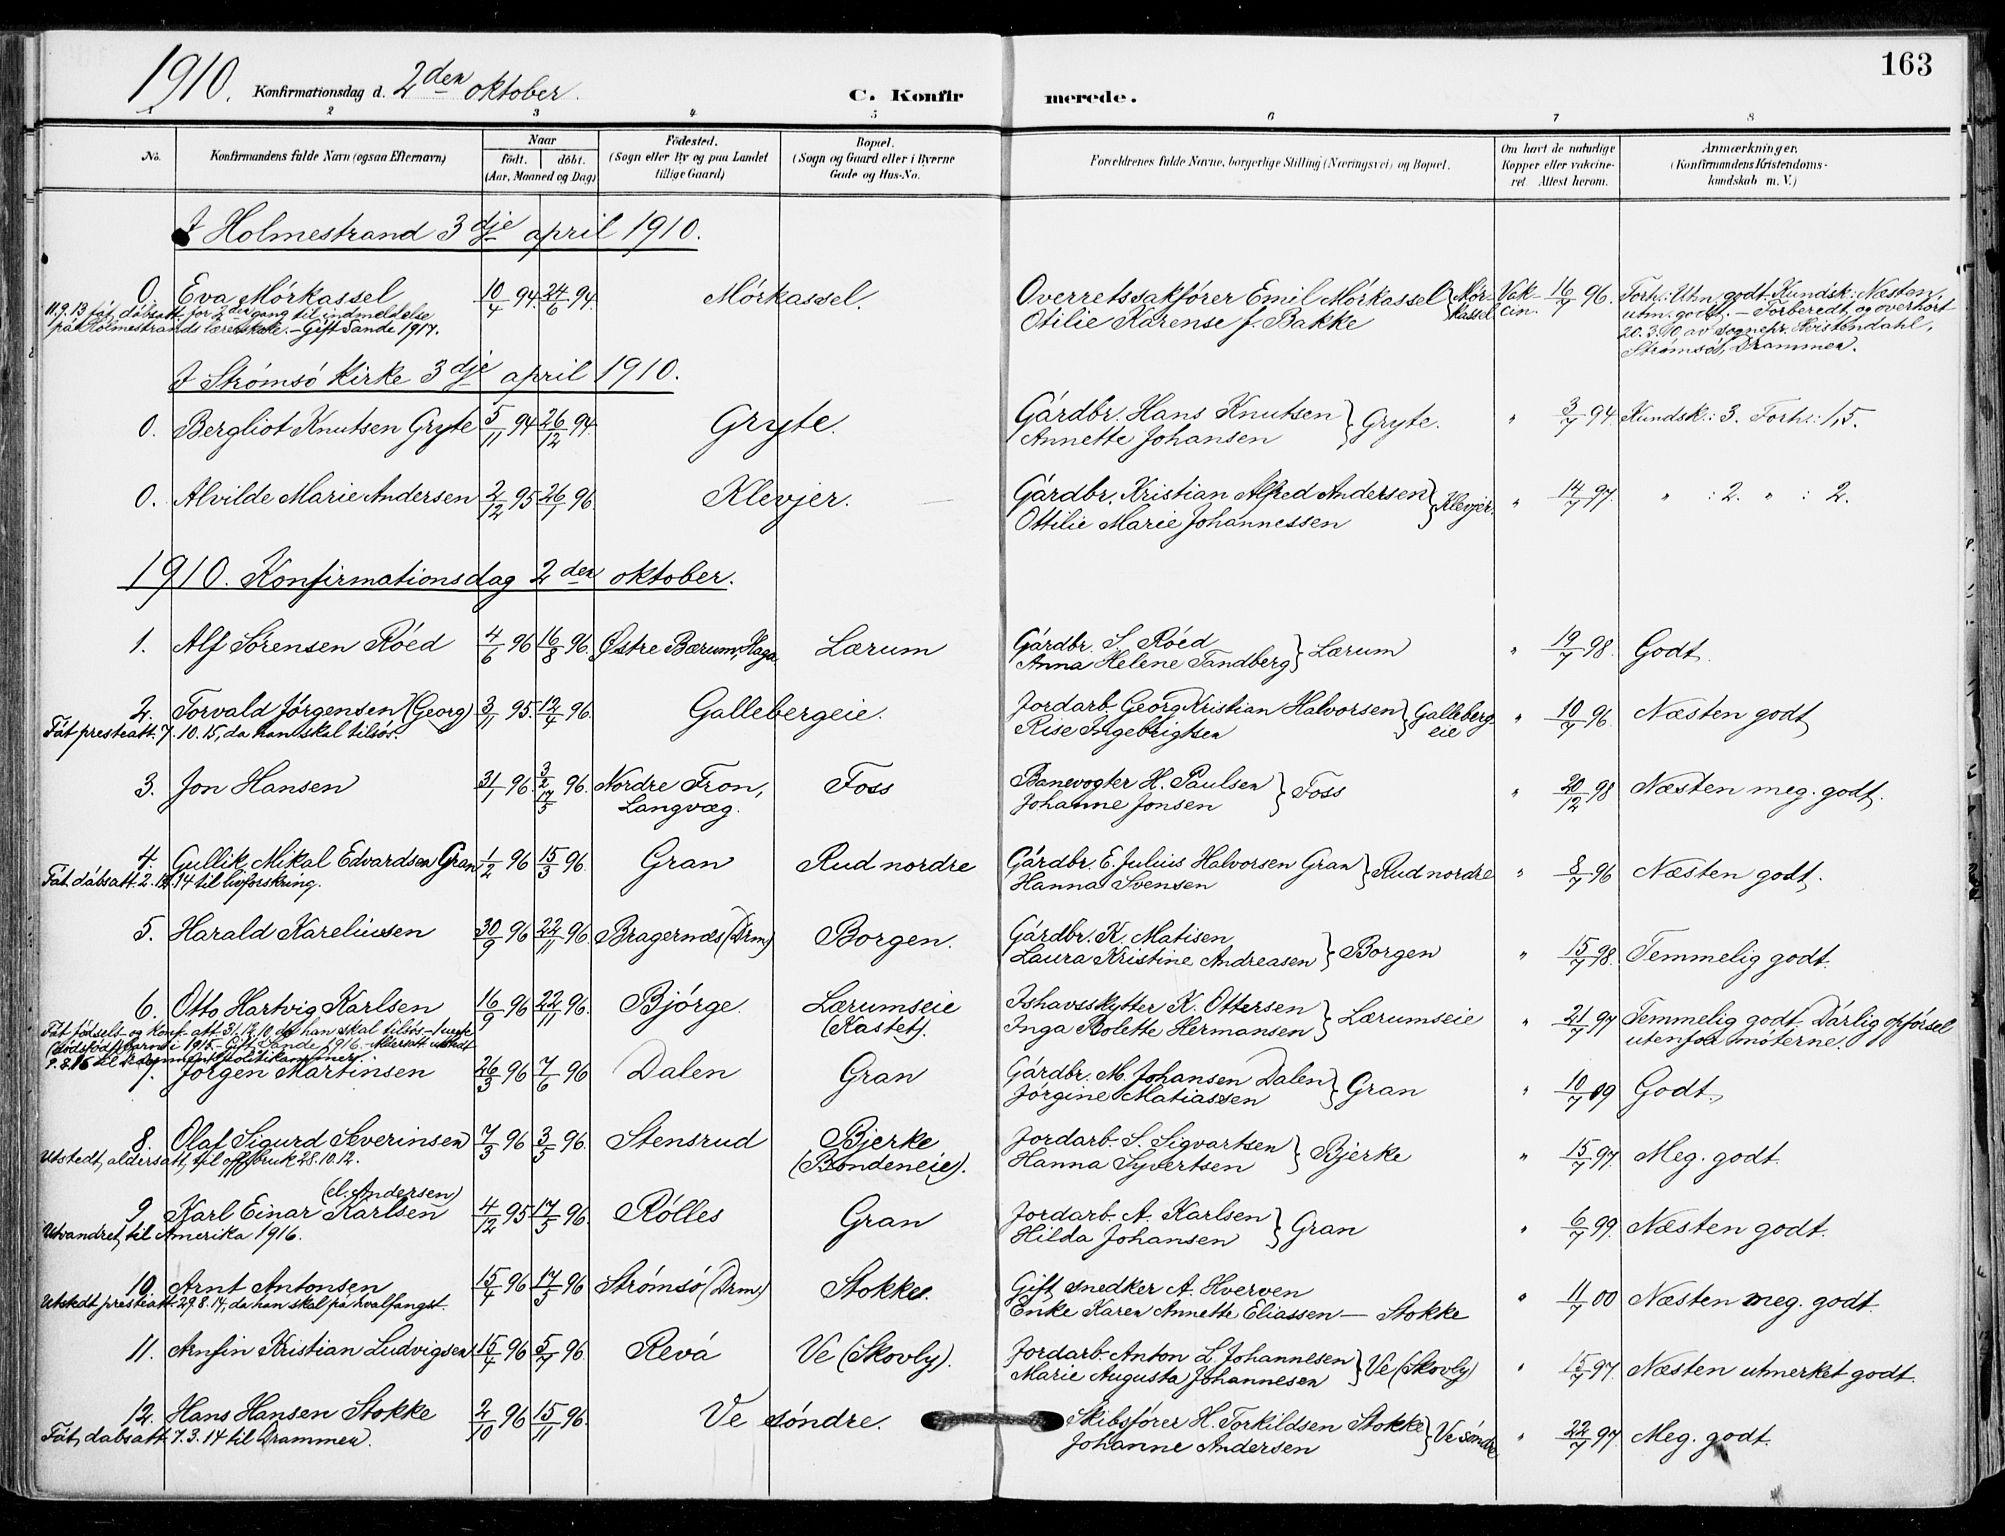 163
1910. Konfirmationsdag d. 2den oktober.
C. Konfirmerede.
1 2 3 4 5 6 7 8
No. Konfirmandens fulde Navn (ogsaa Efternavn) Naar født. døbt. (Aar, Maaned og Dag) Fødested. (Sogn eller By og paa Landet tillige Gaard) Bopæl. (Sogn og Gaard eller i Byerne Gade og Hus-No. Forældrenes fulde Navne, borgerlige Stilling (Næringsvei) og Bopæl. Om havt de naturlige Kopper eller vakcineret Attest herom. Anmærkninger. (Konfirmandens Kristendomskundskab m. V.)
I Holmestrand 3dje april 1910.
0. Eva Mórkassel 10/4 94. 24/6 94. Mórkassel. Overretssakfører Emil Mórkassel Otilie Karense f. Bakke } Mórkassel Vakcin. 16/7 96. Forh.: Utm. godt. Kundsk.: Næsten utm. godt. – Forberedt og overhórt 20.3.10 av sognepr. Kristendahl, Strómsó, Drammen.
11.9.13 fåt dåbsatt. for 2den gang til indmeldelse på Holmestrands lærerskole. – Gift Sande 1917.
I Strómsó kirke 3dje april 1910.
0. Bergliot Knutsen Gryte 5/11 94 26/12 94. Gryte. Gárdbr. Hans Knutsen Annette Johansen } Gryte. " 3/7 94 Kundsk.: 3. Forh.: 1,5.
0. Alvilde Marie Andersen 2/12 95 26/1 96. Klevjer. Gárdbr. Kristian Alfred Andersen Ottilie Marie Johannessen } Klevjer. " 14/7 97. " : 2. " : 2.
1910. Konfirmationsdag 2den oktober.
1. Alf Sórensen Róed 4/6 96 16/8 96. Østre Bærum, Haga Lærum Gárdbr. S. Róed Anna Helene Tandberg } Lærum " 19/7 98. Godt.
2. Torvald Jórgensen (Georg) 3/11 95. 12/4 96. Gallebergeie. Jordarb. Georg Kristian Halvorsen Rise Ingebrigtsen } Gallebergeie " 10/7 96. Næsten godt
Fåt presteatt. 7.10.15, da han skal tilsós.
3. Jon Hansen 31/1 96. 3/2 17/5 96. Nordre Fron, Langvæg. Foss Banevogter H. Paulsen Johanne Jonsen } Foss " 20/12 98 Næsten meg. godt.
4. Gullik Mikal Edvardsen Gran 1/2 96 15/3 96. Gran Rud nordre Gárdbr. E. Julius Halvorsen Gran Hanna Svensen } Rud nordre " 8/7 96 Næsten godt.
Fåt dåbsatt. 2.12.14 til livforsikring.
5. Harald Kareliusen 30/9 96 22/11 96. Bragernæs (Drm) Borgen. Gárdbr. K. Matisen Laura Kristine Andreasen } Borgen " 15/7 98. Temmelig godt.
6. Otto Hartvig Karlsen 16/9 96 22/11 96. Bjórge. Lærumseie (Kastet). Ishavsskytter K. Ottersen Inga Bolette Hermansen } Lærumseie " 21/7 97 Temmelig godt. Dárlig opfórsel utenfor móterne.
Fåt fødsels- og konf. att. 31.12.10, da han skal tilsós. barn i 1915 – Gift Sande 1916 –
7. Jórgen Martinsen 26/3 96 7/6 96 Dalen Gran Gárdbr. M. Johansen Dalen Jórgine Matiassen } Gran " 10/7 09 Godt.
8. Olaf Sigurd Severinsen 7/3 96 3/5 96. Stensrud Bjerke (Bondeneie). Jordarb. S. Sigvartsen Hanna Syvertsen } Bjerke " 15/7 97. Meg. godt.
Utstedt aldersatt. til off. bruk 28.10.12.
9 Karl Einar Karlsen (el. Andersen) 4/12 95 17/5 96. Rólles Gran Jordarb. A. Karlsen Hilda Johansen } Gran " 6/7 99. Næsten godt.
Utvandret til Amerika 1916.
10. Arnt Antonsen 15/4 96 17/5 96 Strómsó (Drm.) Stokke. Gift snedker A. Hverven Enke Karen Annette Eliassen – Stokke " 11/7 00 Næsten meg. godt.
Utstedt presteatt. 29.8.14, da han skal på hvalfangst.
11. Arnfin Kristian Ludvigsen 15/4 96 5/7 96. Revá Ve (Skovly). Jordarb. Anton L. Johannesen Marie Augusta Johannesen } Ve (Skovly) " 15/7 97. Næsten utmerket godt.
12. Hans Hansen Stokke 2/10 96 15/11 96. Ve sóndre. Skibsfórer H. Torkildsen Stokke Johanne Andersen } Ve sóndre " 22/7 97. Meg. godt.
Fåt dåbsatt. 7.3.14 til Drammen.